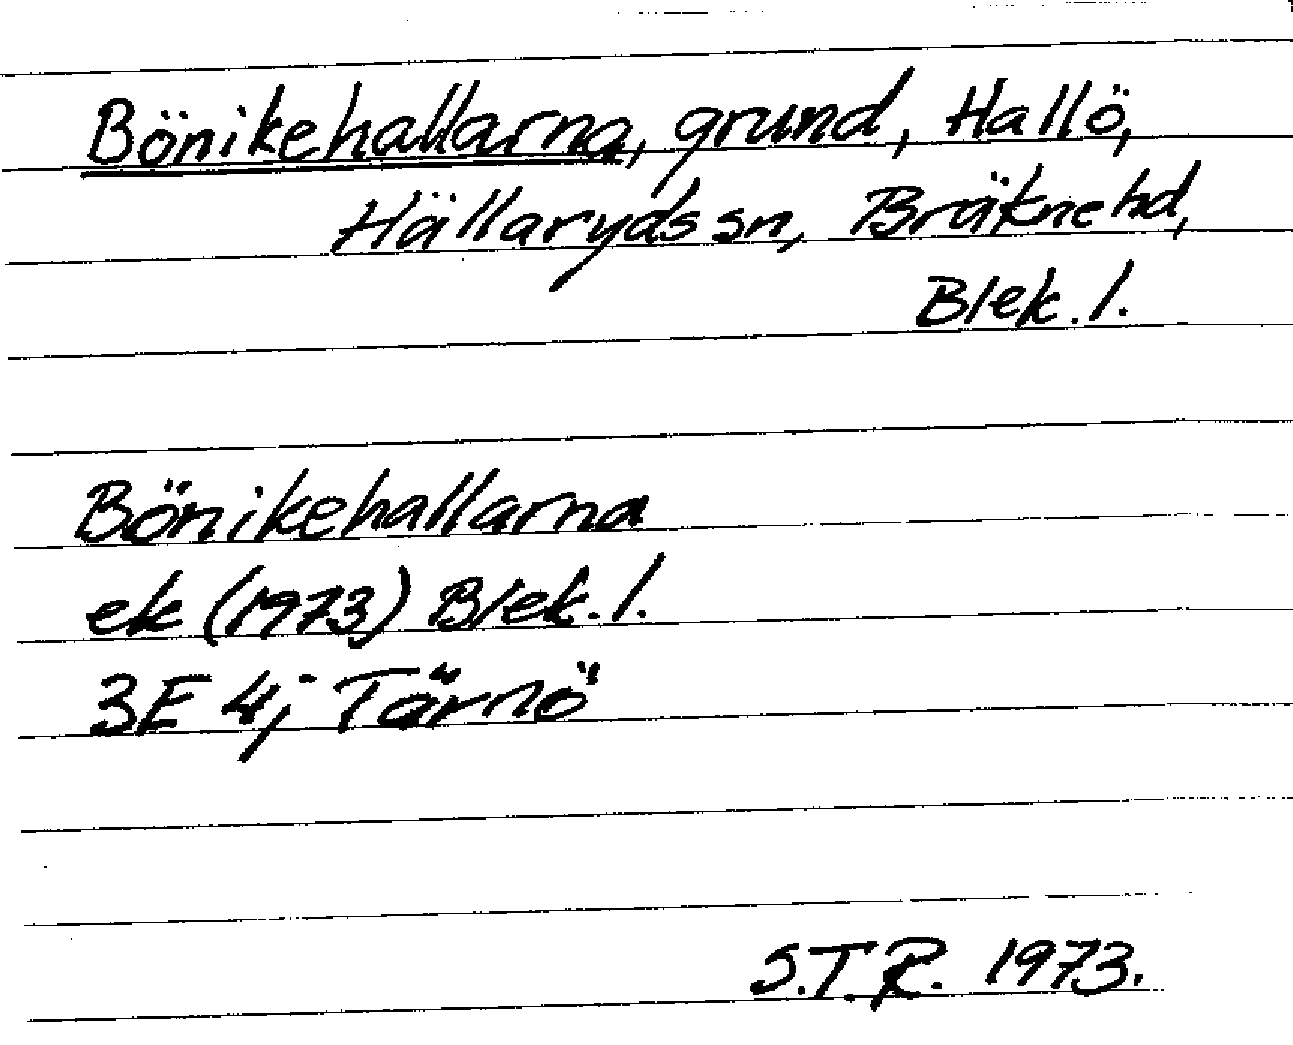 Bönikehallarna, grund, Hallö,
Hällaryds sn, Bräkne hd,
Blek. l.
Bönikehallarna
ek (1973) Blek. l.
3E 4j Tärnö
S.T.R. 1973.